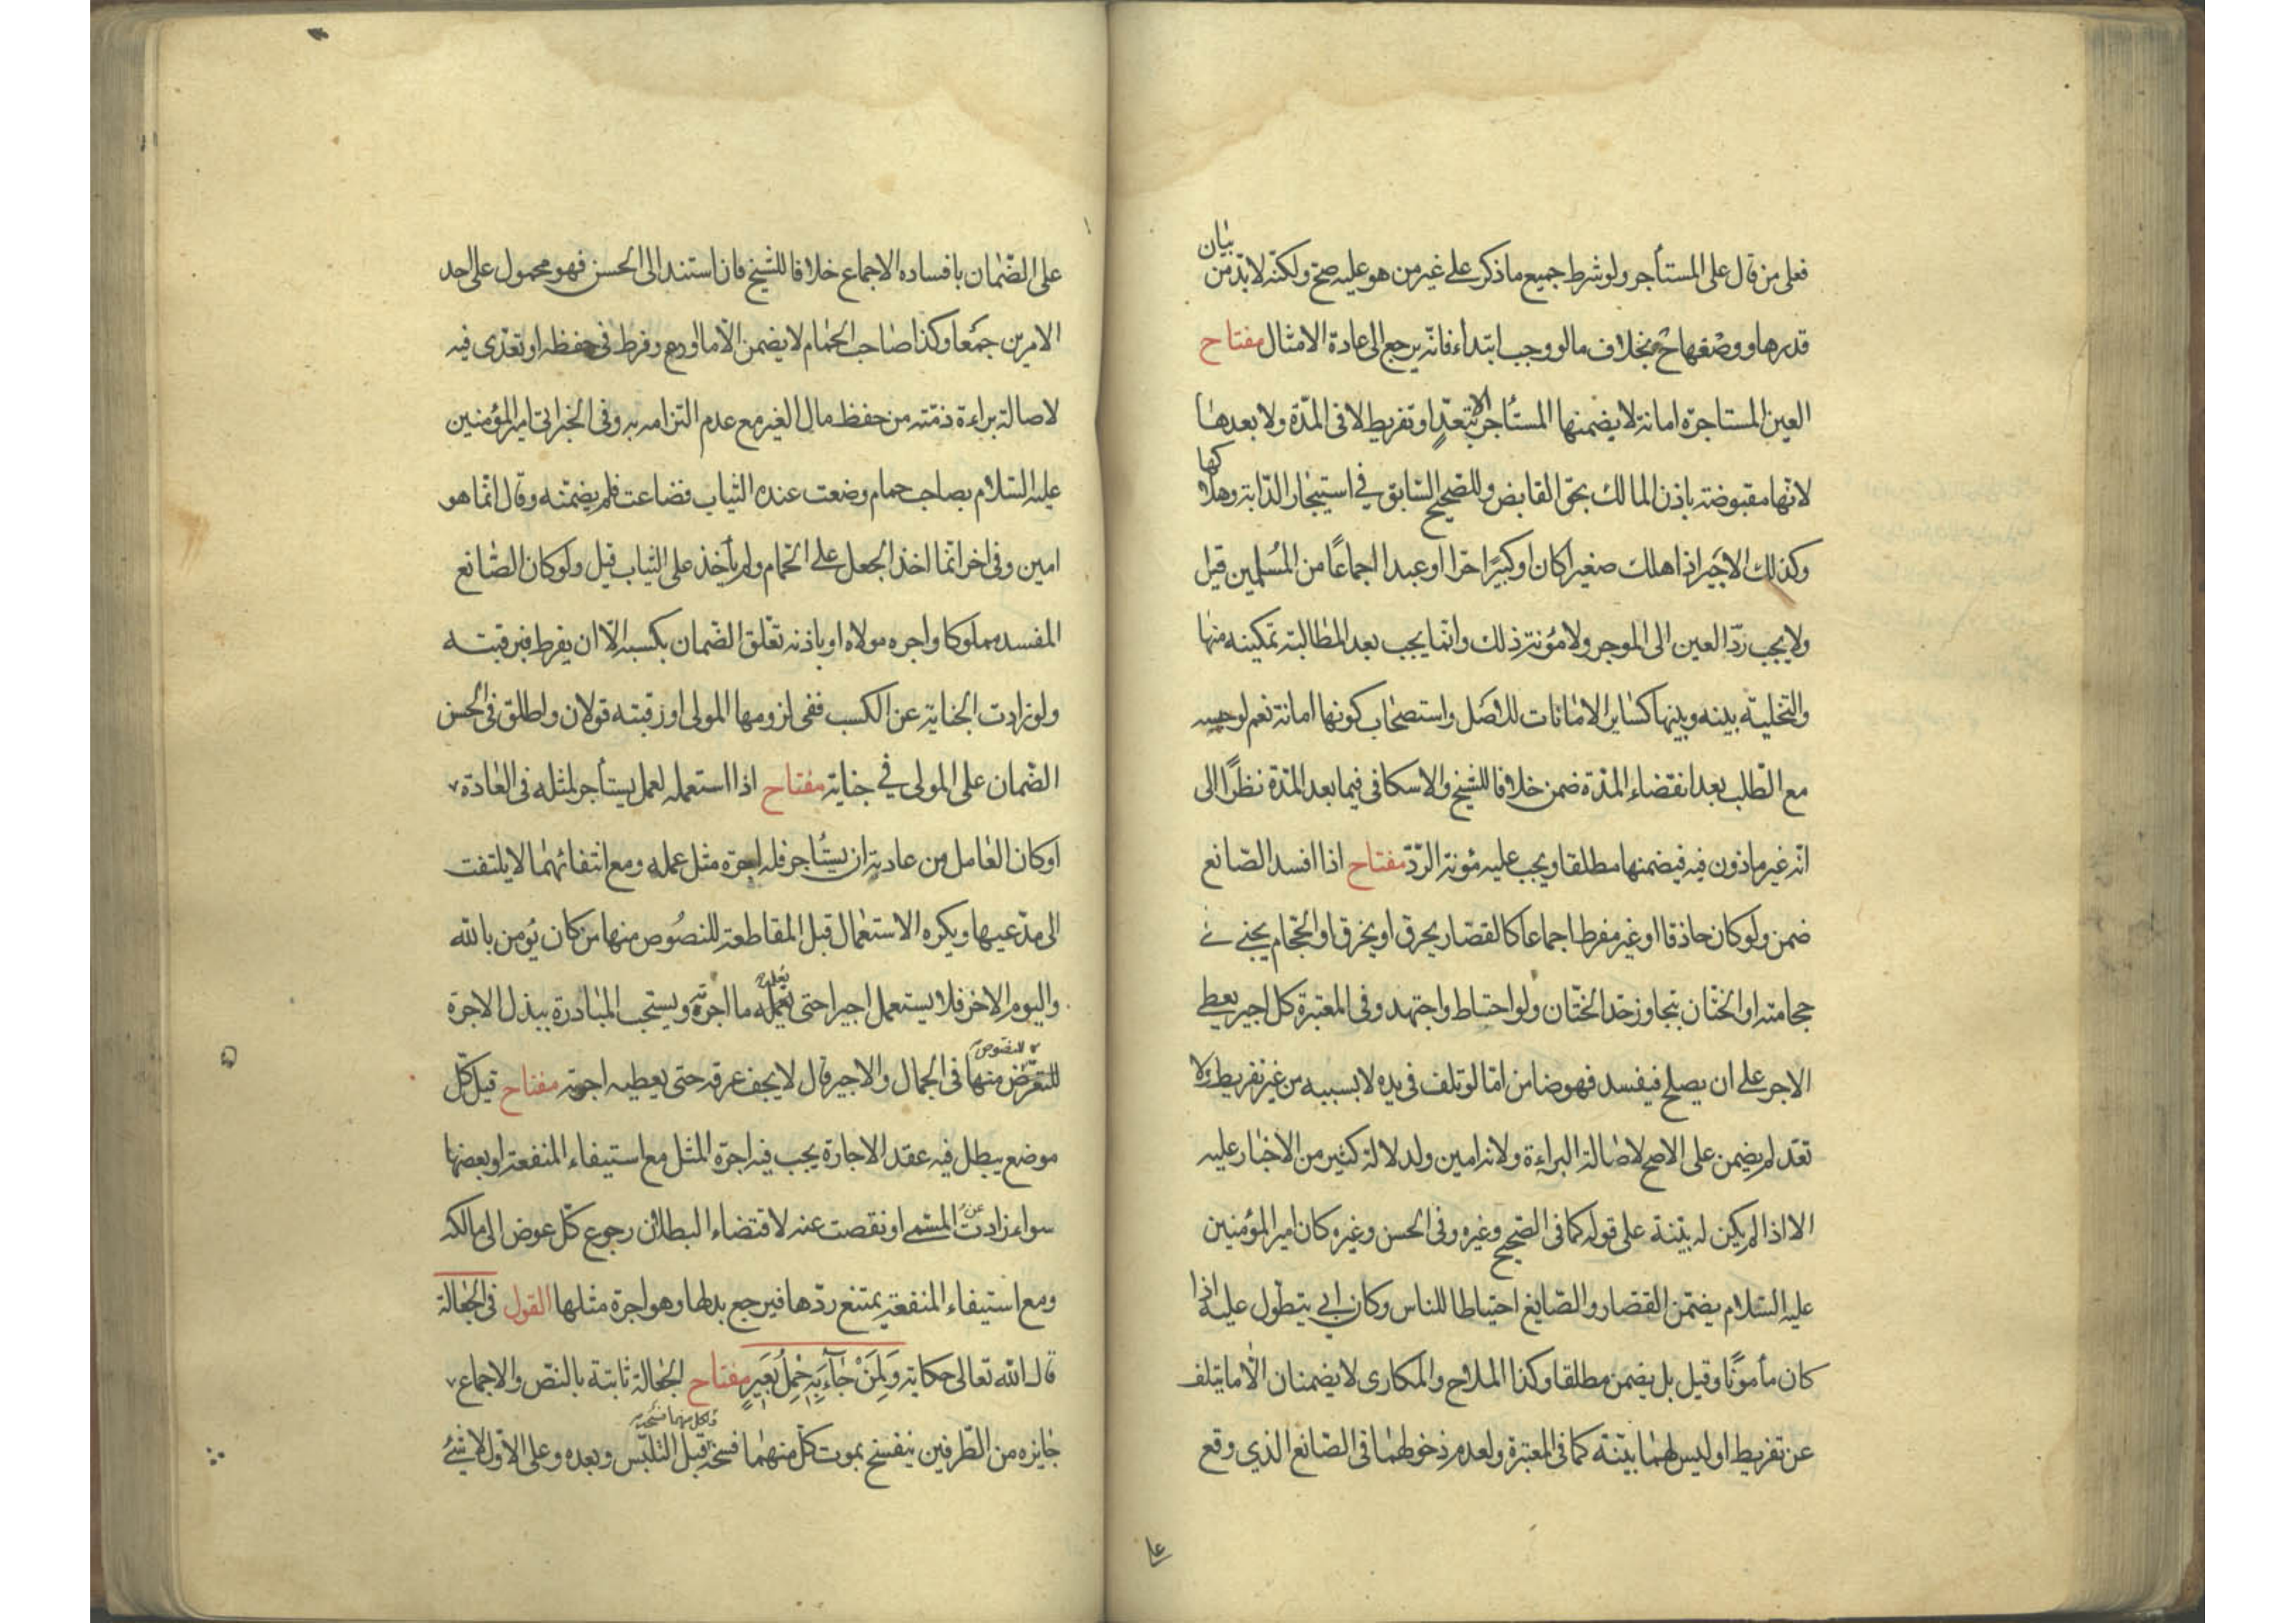 فعلى من قال على المستأجر ولو شرط جميع ما ذكر على غير من هو عليه صح ولكنه لا بد من بيان
قدرها ووصفها ح بخلاف ما لو وجب ابتداء فانه يرجع الى عادة الامثال مفتاح
العين المستاجرة امانة لا يضمنها المستأجر الا بتعدٍ او تفريط لا فى المدة ولا بعدها
لانها مقبوضة باذن المالك بحق القابض وللصحيح السابق فى استيجار الدابة وهلاكها
وكذلك الاجير اذا هلك صغيرا كان او كبيرًا حرا او عبدا اجماعًا من المسلمين قيل
ولا يجب ردّ العين الى الموجر ولا مؤنة ذلك وانما يجب بعد المطالبة تمكينه منها
والتخلية بينه وبينها كساير الامانات للاصل واستصحاب كونها امانة نعم لو حبسه
مع الطلب بعد انقضاء المدة ضمن خلافا للشيخ والاسكافى فيما بعد المدة نظرًا الى
انه غير ماذون فيه فيضمنها مطلقا ويجب عليه مؤنة الردّ مفتاح اذا افسد الصانع
ضمن ولو كان حاذقا او غير مفرط اجماعا كالقصار يحرق او يخرق او الحجام يجنى فى
حجامته او الختان بتجاوز حد الختان ولو احتاط واجتهد وفى المعتبرة كل اجير يعطى
الاجر على ان يصلح فيفسد فهو ضامن اما لو تلف فى يده لا بسببه من غير تفريط ولا
تعد لم يضمن على الاصح لاصالة البراءة ولانه امين ولدلالة كثير من الاخبار عليه
الا اذا لم يكن له بينة على قوله كما فى الصحيح وغيره وفى الحسن وغيره كان امير المؤمنين
عليه السلام يضمن القصار والصايغ احتياطا للناس وكان ابى يتطول عليه اذا
كان مأمونًا وقيل بل يضمن مطلقا وكذا الملاح والمكارى لا يضمنان الا ما يتلف
عن تفريط او ليس لهما بينة كما فى المعتبرة ولعدم دخولهما فى الصانع الذي وقع
على الضمان بافساده الاجماع خلافا للشيخ فان استند الى الحسن فهو محمول على احد
الامرين جمعا وكذا صاحب الحمام لا يضمن الا ما اودع وفرط فى حفظه او تعدى فيه
لاصالة براءة ذمته من حفظ مال الغير مع عدم التزامه به وفى الخبر اتى امير المؤمنين
عليه السلام بصاحب حمام وضعت عنده الثياب فضاعت فلم يضمنه وقال انما هو
امين وفى اخر انما اخذ الجعل على الحمام ولم يأخذ على الثياب قيل ولو كان الصانع
المفسد مملوكا واجره مولاه او باذنه تعلق الضمان بكسبه الا ان يفرط فبرقبته
ولو زادت الجناية عن الكسب ففى لزومها المولى او رقبته قولان واطلق فى الحسن
الضمان على المولى فى جناية مفتاح اذا استعمله لعمل يستأجر لمثله فى العادة
او كان العامل من عادته ان يستأجر فله اجرة مثل عمله ومع انتفائهما لا يلتفت
الى مدعيها ويكره الاستعمال قبل المقاطعة للنصوص منها من كان يؤمن بالله
واليوم الاخر فلا يستعمل اجيرا حتى يعلمه ما اجرته ويستحب المبادرة ببذل الاجرة
للنصوص منها فى الجمال والاجير قال لا يجف عرقه حتى يعطيه اجرته مفتاح قيل كلّ
موضع يبطل فيه عقد الاجارة يجب فيه اجرة المثل مع استيفاء المنفعة او بعضها
سواء زادت عن المسمى او نقصت عنه لاقتضاء البطلان رجوع كلّ عوض الى مالكه
ومع استيفاء المنفعة يمتنع ردّها فيرجع ببدلها وهو اجرة مثلها القول فى الجعالة
قال الله تعالى حكاية وَلِمَنْ جَآءَ بِهِ حِمْلُ بَعِيرٍ مفتاح الجعالة ثابتة بالنص والاجماع
جايزه من الطرفين ينفسخ بموت كل منهما ولكل منهما فسخه قبل التلبس وبعده وعلى الاول لا شئ